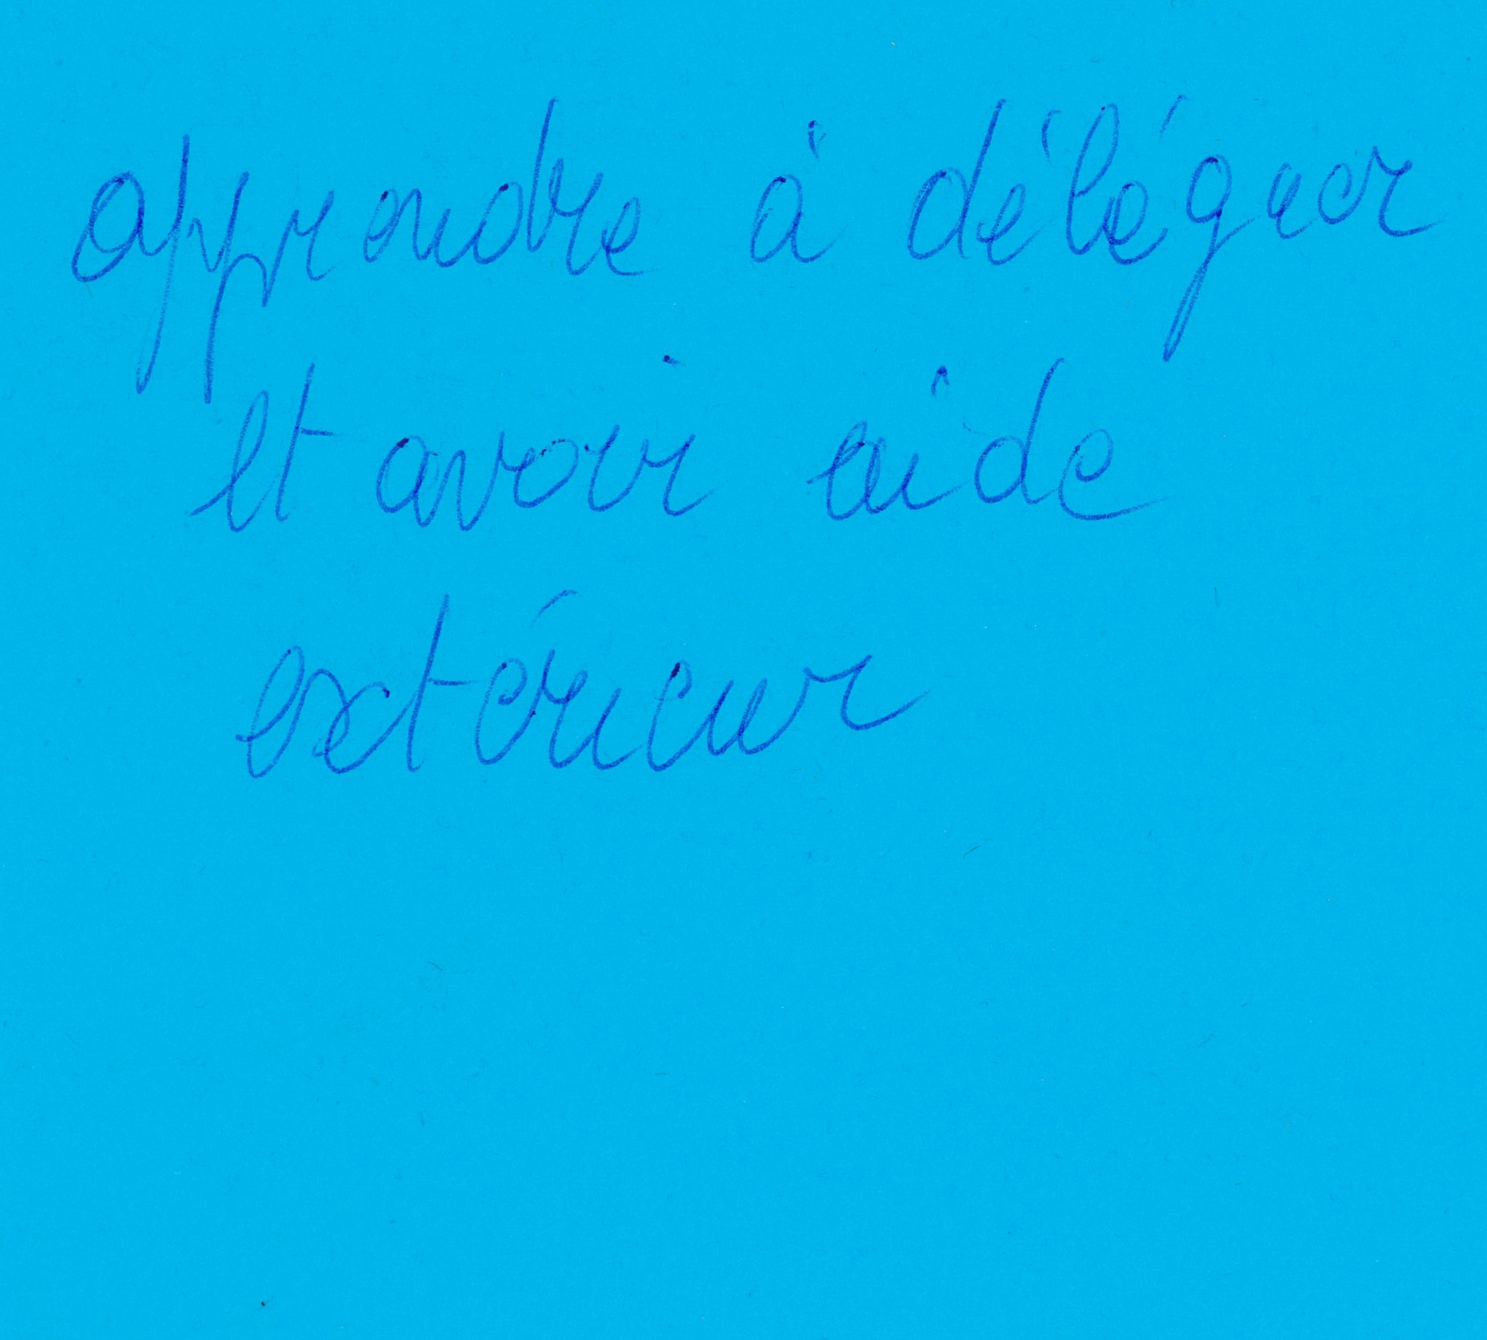 apprendre à déléguer
et avoir aide
extérieur